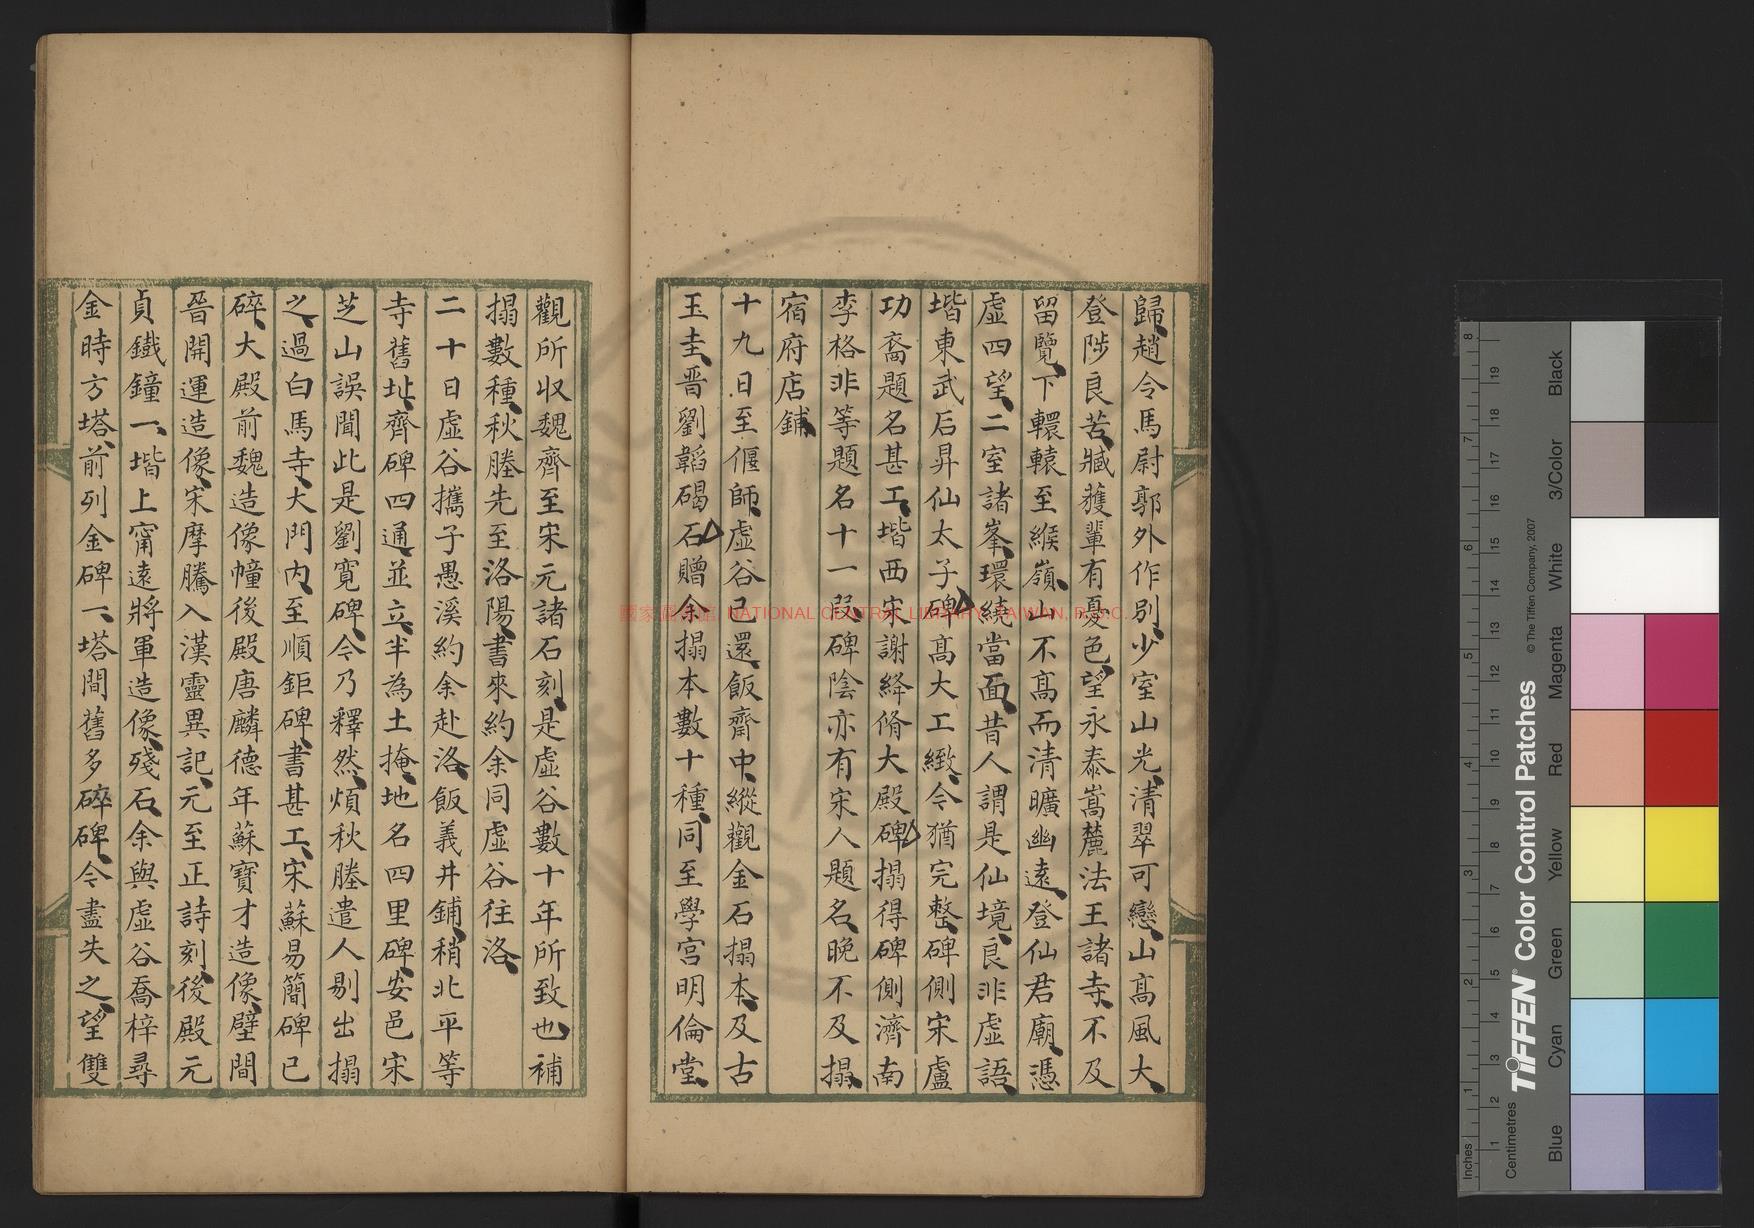 歸趙令馬尉郭外作別少室山光清翠可戀山高風大
登陟良苦臧獲輩有憂色望永泰嵩麓法王諸寺不及
留覽下轘轅至緱嶺山不高而清曠幽遠登仙君廟憑
虛四望二室諸峯環繞當面昔人謂是仙境良非虛語
堦東武后昇仙太子碑高大工緻令猶完整碑側宋盧
功裔題名甚工堦西宋謝絳脩大殿碑搨得碑側濟南
李格非等題名十一段碑陰亦有宋人題名晚不及搨
宿府店鋪
十九日至偃師虛谷已還飯齋中縱觀金石搨本及古
玉圭晋劉韜碣石贈余搨本數十種同至學宮明倫堂
觀所收魏齊至宋元諸石刻是虛谷數十年所致也補
搨數種秋塍先至洛陽書來約余同虛谷往洛
二十日虛谷攜子愚溪約余赴洛飯義井鋪稍北平等
寺舊址齊碑四通並立半為土掩地名四里碑安邑宋
芝山誤聞此是劉寬碑令乃釋然煩秋塍遣人剔出搨
之過白馬寺大門內至順鉅碑書甚工宋蘇易簡碑已
碎大殿前魏造像幢後殿唐麟德年蘇寶才造像壁間
晉開運造像宋摩騰入漢靈異記元至正詩刻後殿元
貞鐵鐘一堦上甯遠將軍造像殘石余與虛谷喬梓尋
金時方塔前列金碑一塔間舊多碎碑令盡失之望雙
國家圖書館 NATIONAL CENTRAL LIBRARY, TAIWAN, R.O.C.
TIFFEN® Color Control Patches
© The Tiffen Company, 2007
Inches
Centimetres
Blue Cyan Green Yellow Red Magenta White 3/Color Black